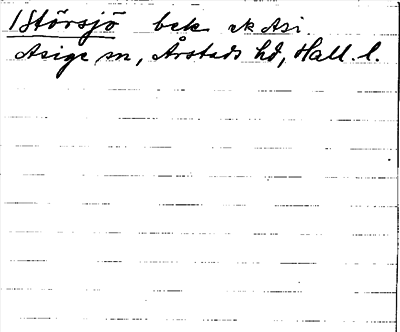 1 Störsjö bek ek Asi
Asige sn, Årstads hd, Hall. l.